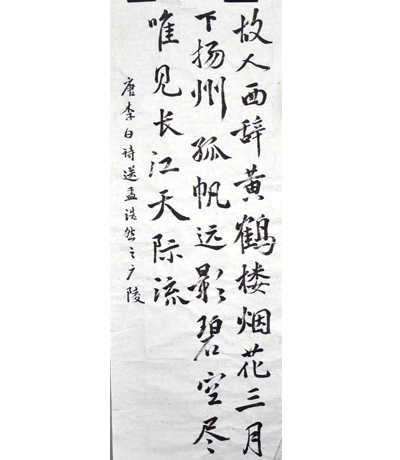 故人西辞黄鹤楼烟花三月
下扬州孤帆远影碧空尽
唯见长江天际流
唐李白诗送孟浩然之广陵